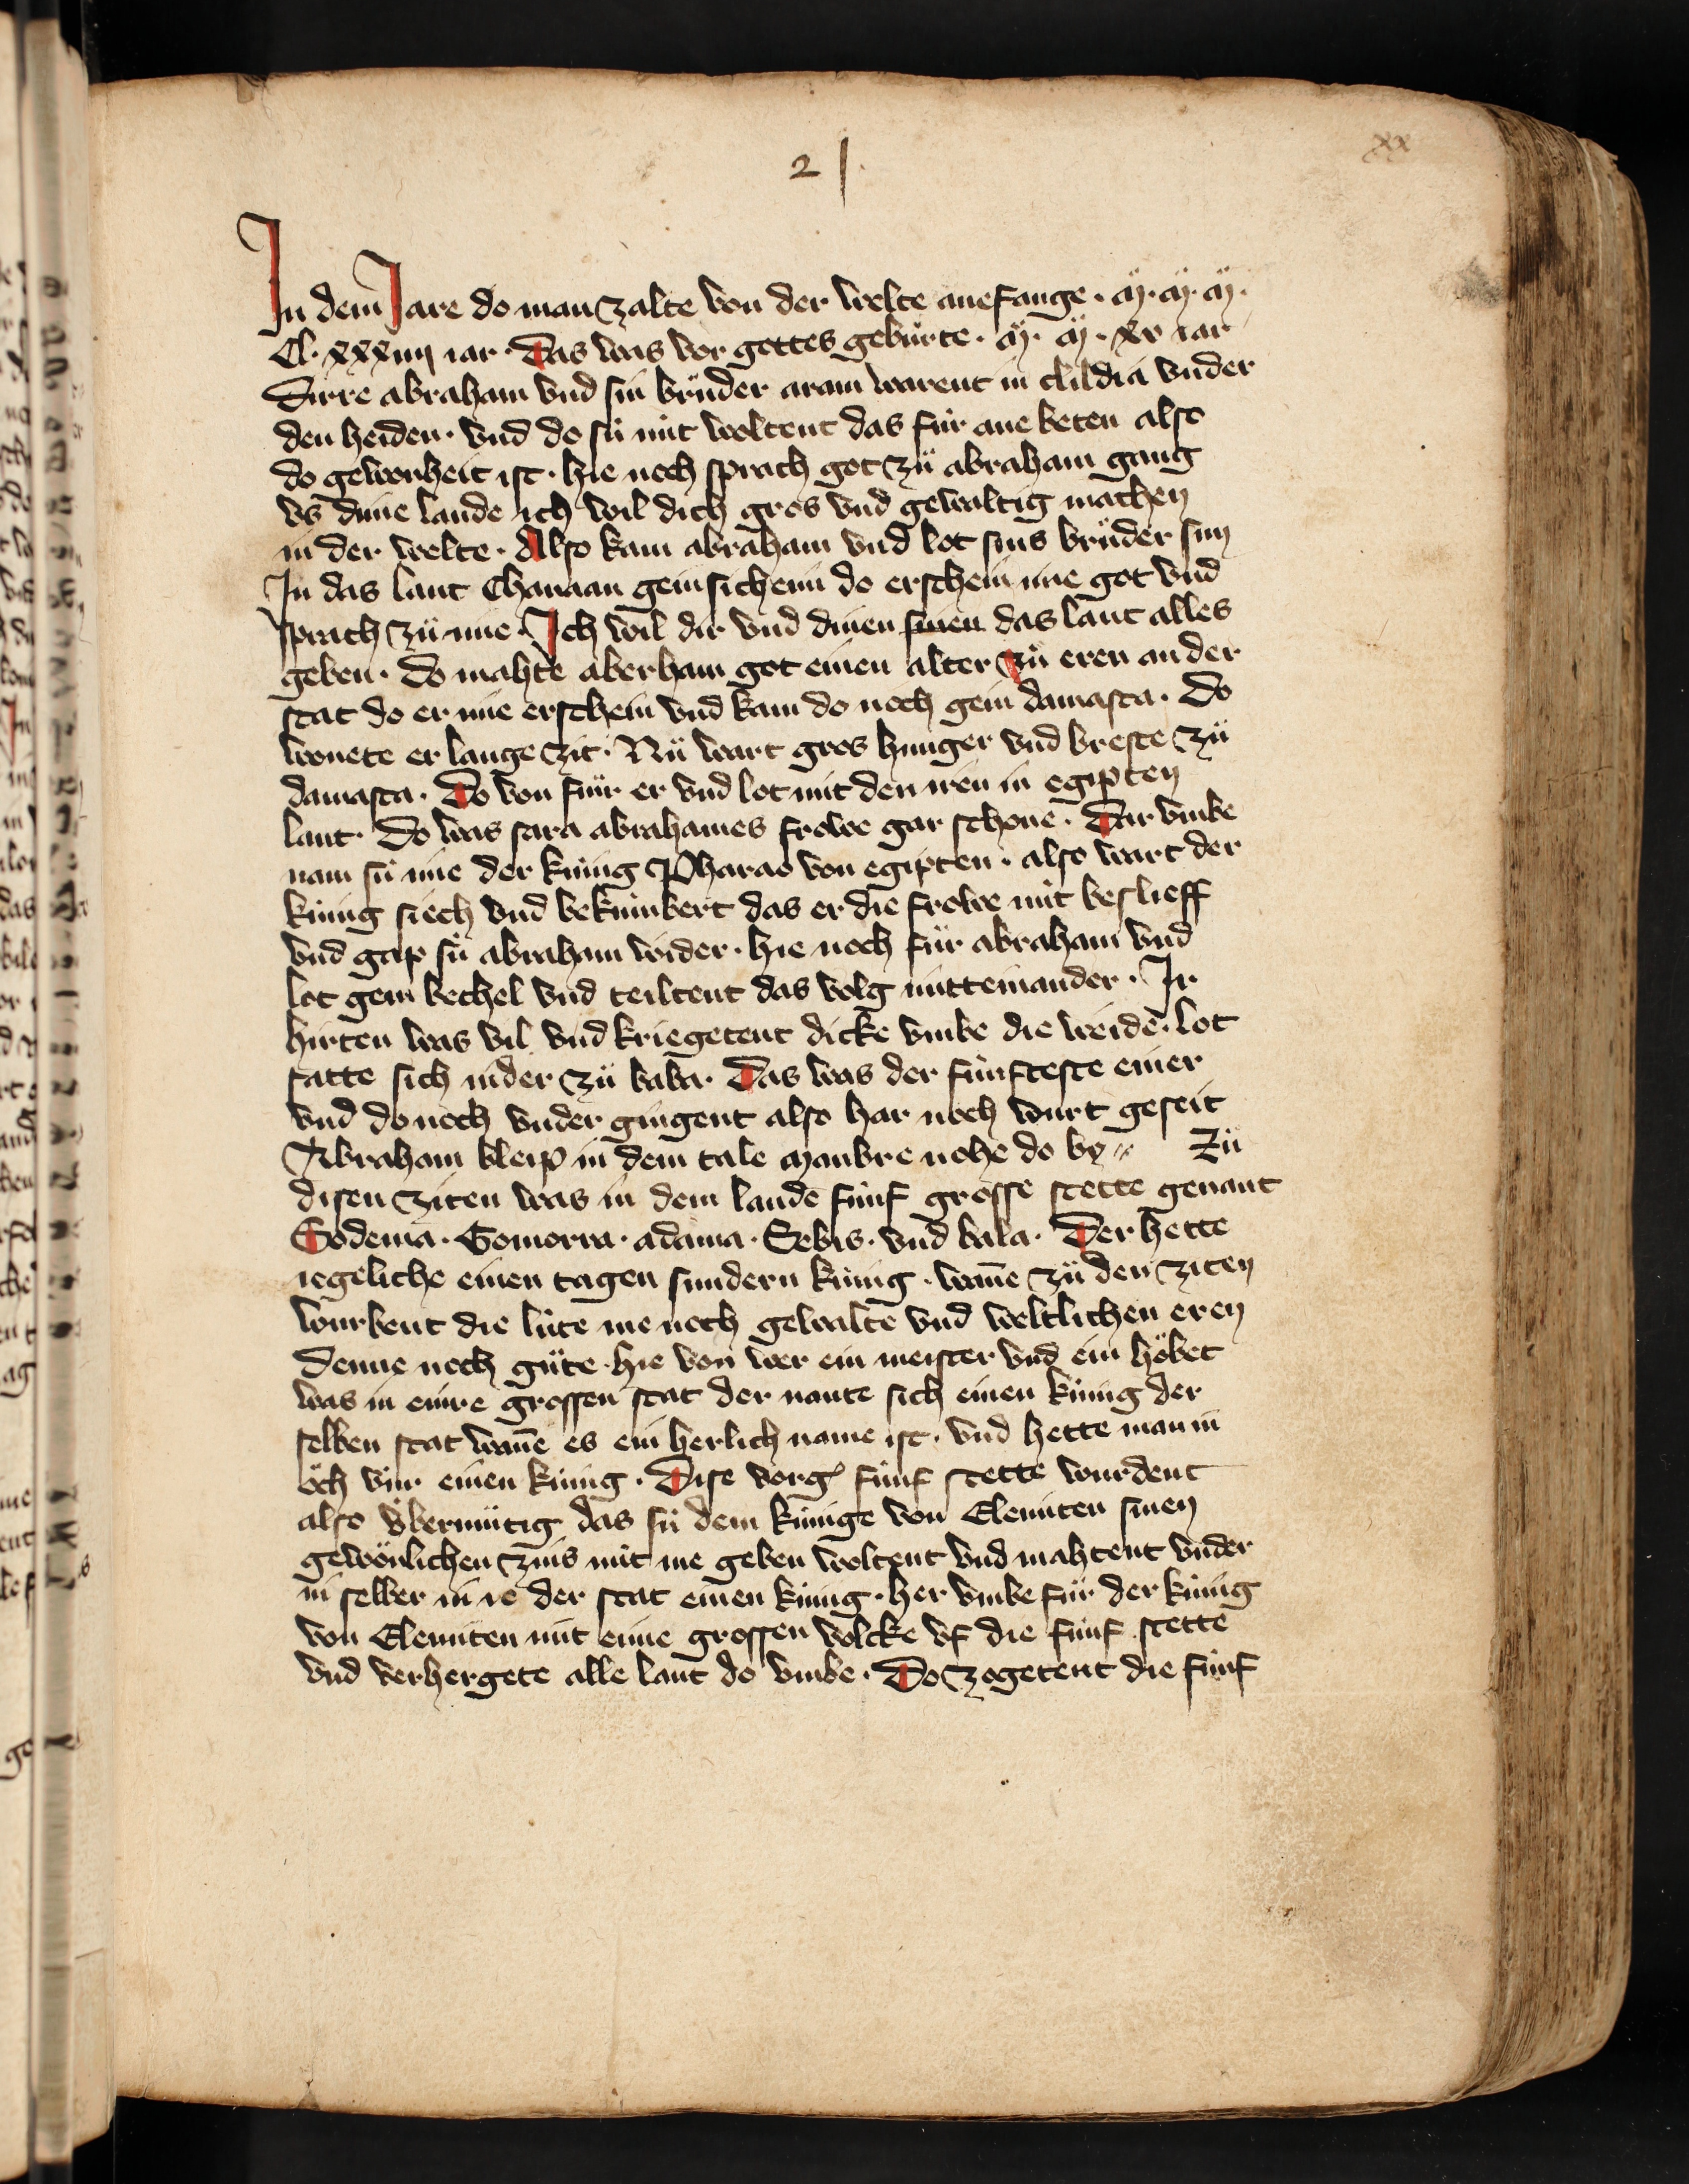 2 |
xx
In dem Jare do man zalte von der welte anefange · M̈ · M̈ · M̈ ·
Cl · xxxiiij iar · Das was vor gottes gebúrte · M̈ · M̈ · xv iar
Dirre abraham vnd sin brüder aram warent in clildia vnder
den heiden · vnd do sü nüt woltent das für ane beten also
do gewonheit ist · hie noch sprach got zü abraham gang
vs dime lande ich wil dich gros vnd gewaltig machen
in der welte · Also kam abraham vnd lot sins brüder sun
In das lant Chanaan gein sichem do erschein ime got vnd
sprach zü ime · Ich wil dir vnd dinen sinen das lant alles
geben · do mahte aberham got einen alter zü eren an der
stat do er ime erschein vnd kam do noch gein damasca · Do
wonete er lange zit · Nü wart gros hunger vnd breste zü
damasca · Do von für er vnd lot mit den iren in egipten
lant · Do was sara abrahames frowe gar schone · Dar vmbe
nam sü ime der künig Pharao von egipten · also wart der
künig siech vnd bekümbert das er die frowe nüt beslieff
vnd gap sü abraham wider · hie noch für abraham vnd
lot gein bethel vnd teiltent das volg mitteinander · Ir
hirten was vil vnd kriegetent dicke vmbe die weide · lot
satte sich nider zü bala · Das was der fünfteste einer
vnd do noch vnder gingent also har noch wurt geseit
Abraham bleip in dem tale Manbre nohe do by // Zü
disen ziten was in dem lande fünf grosse stette genant
Sodema · Gomorra · adama · Sebis · vnd bala · Der hette
iegeliche einen tagen sundern künig · wañe zü den ziten
wurbent die lüte me noch gewalte vnd weltlichen eren
denne noch güte · hie von wer ein meister vnd ein höbet
was in einre grossen stat der nante sich einen künig der
selben stat wañe es ein herlich name ist · vnd hette man in
öch vür einen künig · Dise vorg' fünf stette wurdent
also v̈bermütig das sü dem künige von Elemiten sinen
gewönlichen zins nüt me geben woltent vnd mahtent vnder
in selber in ie der stat einen künig · her vmbe für der künig
von Elemiten mit eime grossen volcke vf die fünf stette
vnd verhergete alle lant do vmbe · Do zogetent die fünf